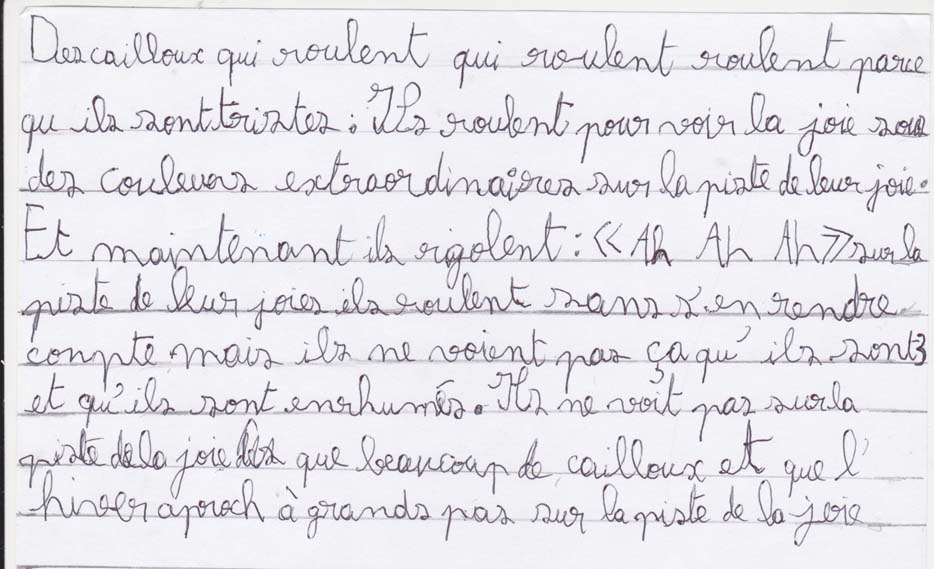 Des cailloux qui roulent qui roulent roulent parce
qu ils sont tristes : Ils roulent pour voir la joie sous
des couleurs extraordinaires sur la piste de leur joie.
Et maintenant ils rigolent : « Ah Ah Ah » sur la
piste de leur joies ils roulent sans s'en rendre
conpte mais ils ne voient pas ça qu' ils sont 3
et qu'ils sont enrhumés. Ils ne voit pas sur la
piste de la joie que beaucoup de cailloux et que l'
hiver aproch à grands pas sur la piste de la joie